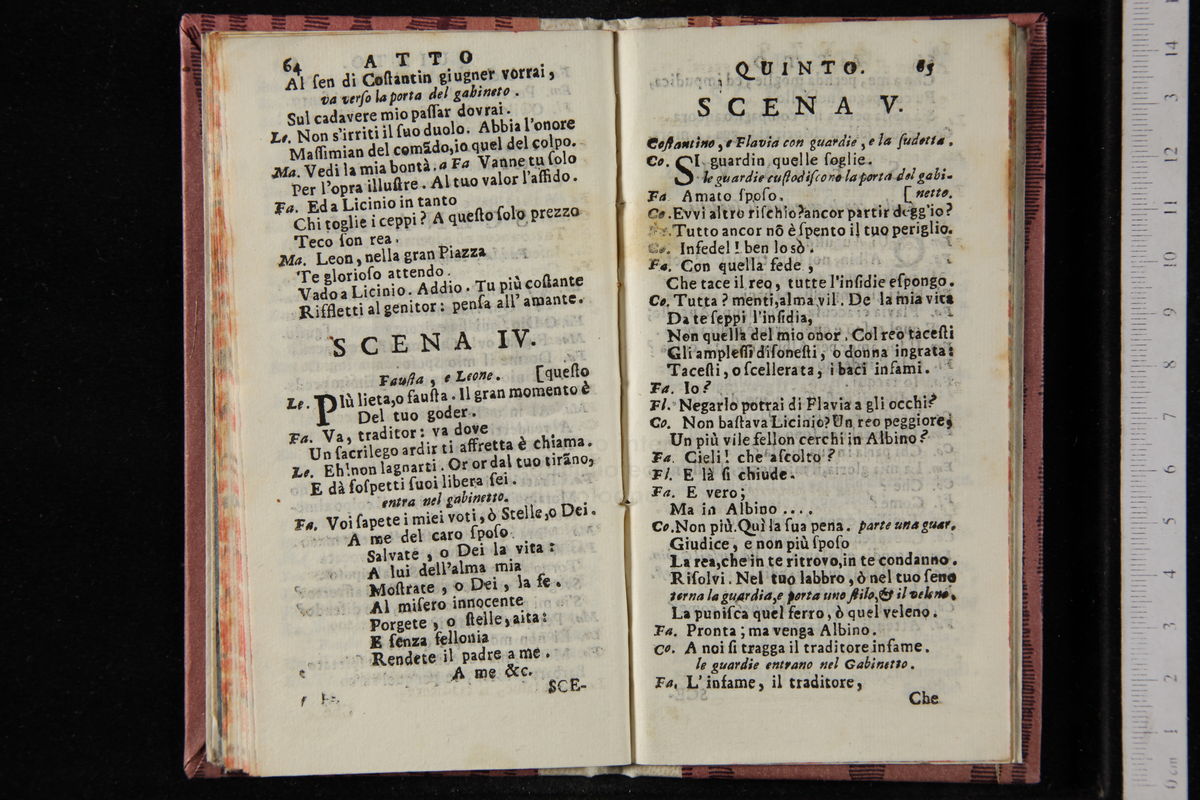 64 ATTO
Al ſen di Coſtantin giugner vorrai,
va verſo la porta del gabineto.
Sul cadavere mio paſſar dovrai.
Le. Non s'irriti il ſuo duolo. Abbia l'onore
Maſſimian del comãdo, io quel del colpo.
Ma. Vedi la mia bontà. a Fa Vanne tu ſolo
Per l'opra illuſtre. Al tuo valor l'affido.
Fa. Ed a Licinio in tanto
Chi toglie i ceppi? A queſto ſolo prezzo
Teco ſon rea.
Ma. Leon, nella gran Piazza
Te glorioſo attendo.
Vado a Licinio. Addio. Tu più coſtante
Riffletti al genitor: penſa all' amante.
SCENA IV.
Fauſta, e Leone. [queſto
Le. PIù lieta, o fauſta. Il gran momento è
Del tuo goder.
Fa. Va, traditor: va dove
Un ſacrilego ardir ti affretta è chiama.
Le. Eh! non lagnarti. Or or dal tuo tirãno,
E dà ſoſpetti ſuoi libera ſei.
entra nel gabinetto.
Fa. Voi ſapete i miei voti, ò Stelle, o Dei.
A me del caro ſpoſo
Salvate, o Dei la vita:
A lui dell'alma mia
Moſtrate, o Dei, la fe.
Al miſero innocente
Porgete, o ſtelle, aita:
E ſenza fellonia
Rendete il padre a me.
A me &c.
SCE-
QUINTO. 65
SCENA V.
Coſtantino, e Flavia con guardie, e la ſudetta.
Co. SI guardin quelle ſoglie.
le guardie cuſtodiſcono la porta del gabi-
Fa Amato ſpoſo. [netto.
Co. Evvi altro riſchio? ancor partir degg'io?
Fa. Tutto ancor nõ è ſpento il tuo periglio.
Co. Infedel! ben lo sò.
Fa. Con quella fede,
Che tace il reo, tutte l'inſidie eſpongo.
Co. Tutta? menti, alma vil. De la mia vita
Da te ſeppi l'inſidia,
Non quella del mio onor. Col reo taceſti
Gli ampleſſi diſoneſti, o donna ingrata:
Taceſti, o ſcellerata, i baci infami.
Fa. Io?
Fl. Negarlo potrai di Flavia a gli occhi?
Co. Non baſtava Licinio? Un reo peggiore,
Un più vile fellon cerchi in Albino?
Fa. Cieli! che aſcolto?
Fl. E là ſi chiude.
Fa. E vero;
Ma in Albino ....
Co. Non più. Quì la ſua pena. parte una guar.
Giudice, e non più ſpoſo
La rea, che in te ritrovo, in te condanno.
Riſolvi. Nel tuo labbro, ò nel tuo ſeno
torna la guardia, e porta uno ſtilo, & il veleno.
La puniſca quel ferro, ò quel veleno.
Fa. Pronta; ma venga Albino.
Co. A noi ſi tragga il traditore infame.
le guardie entrano nel Gabinetto.
Fa. L'infame, il traditore,
Che
14
13
12
11
10
9
8
7
6
5
4
3
2
1
0 cm
3
2
1